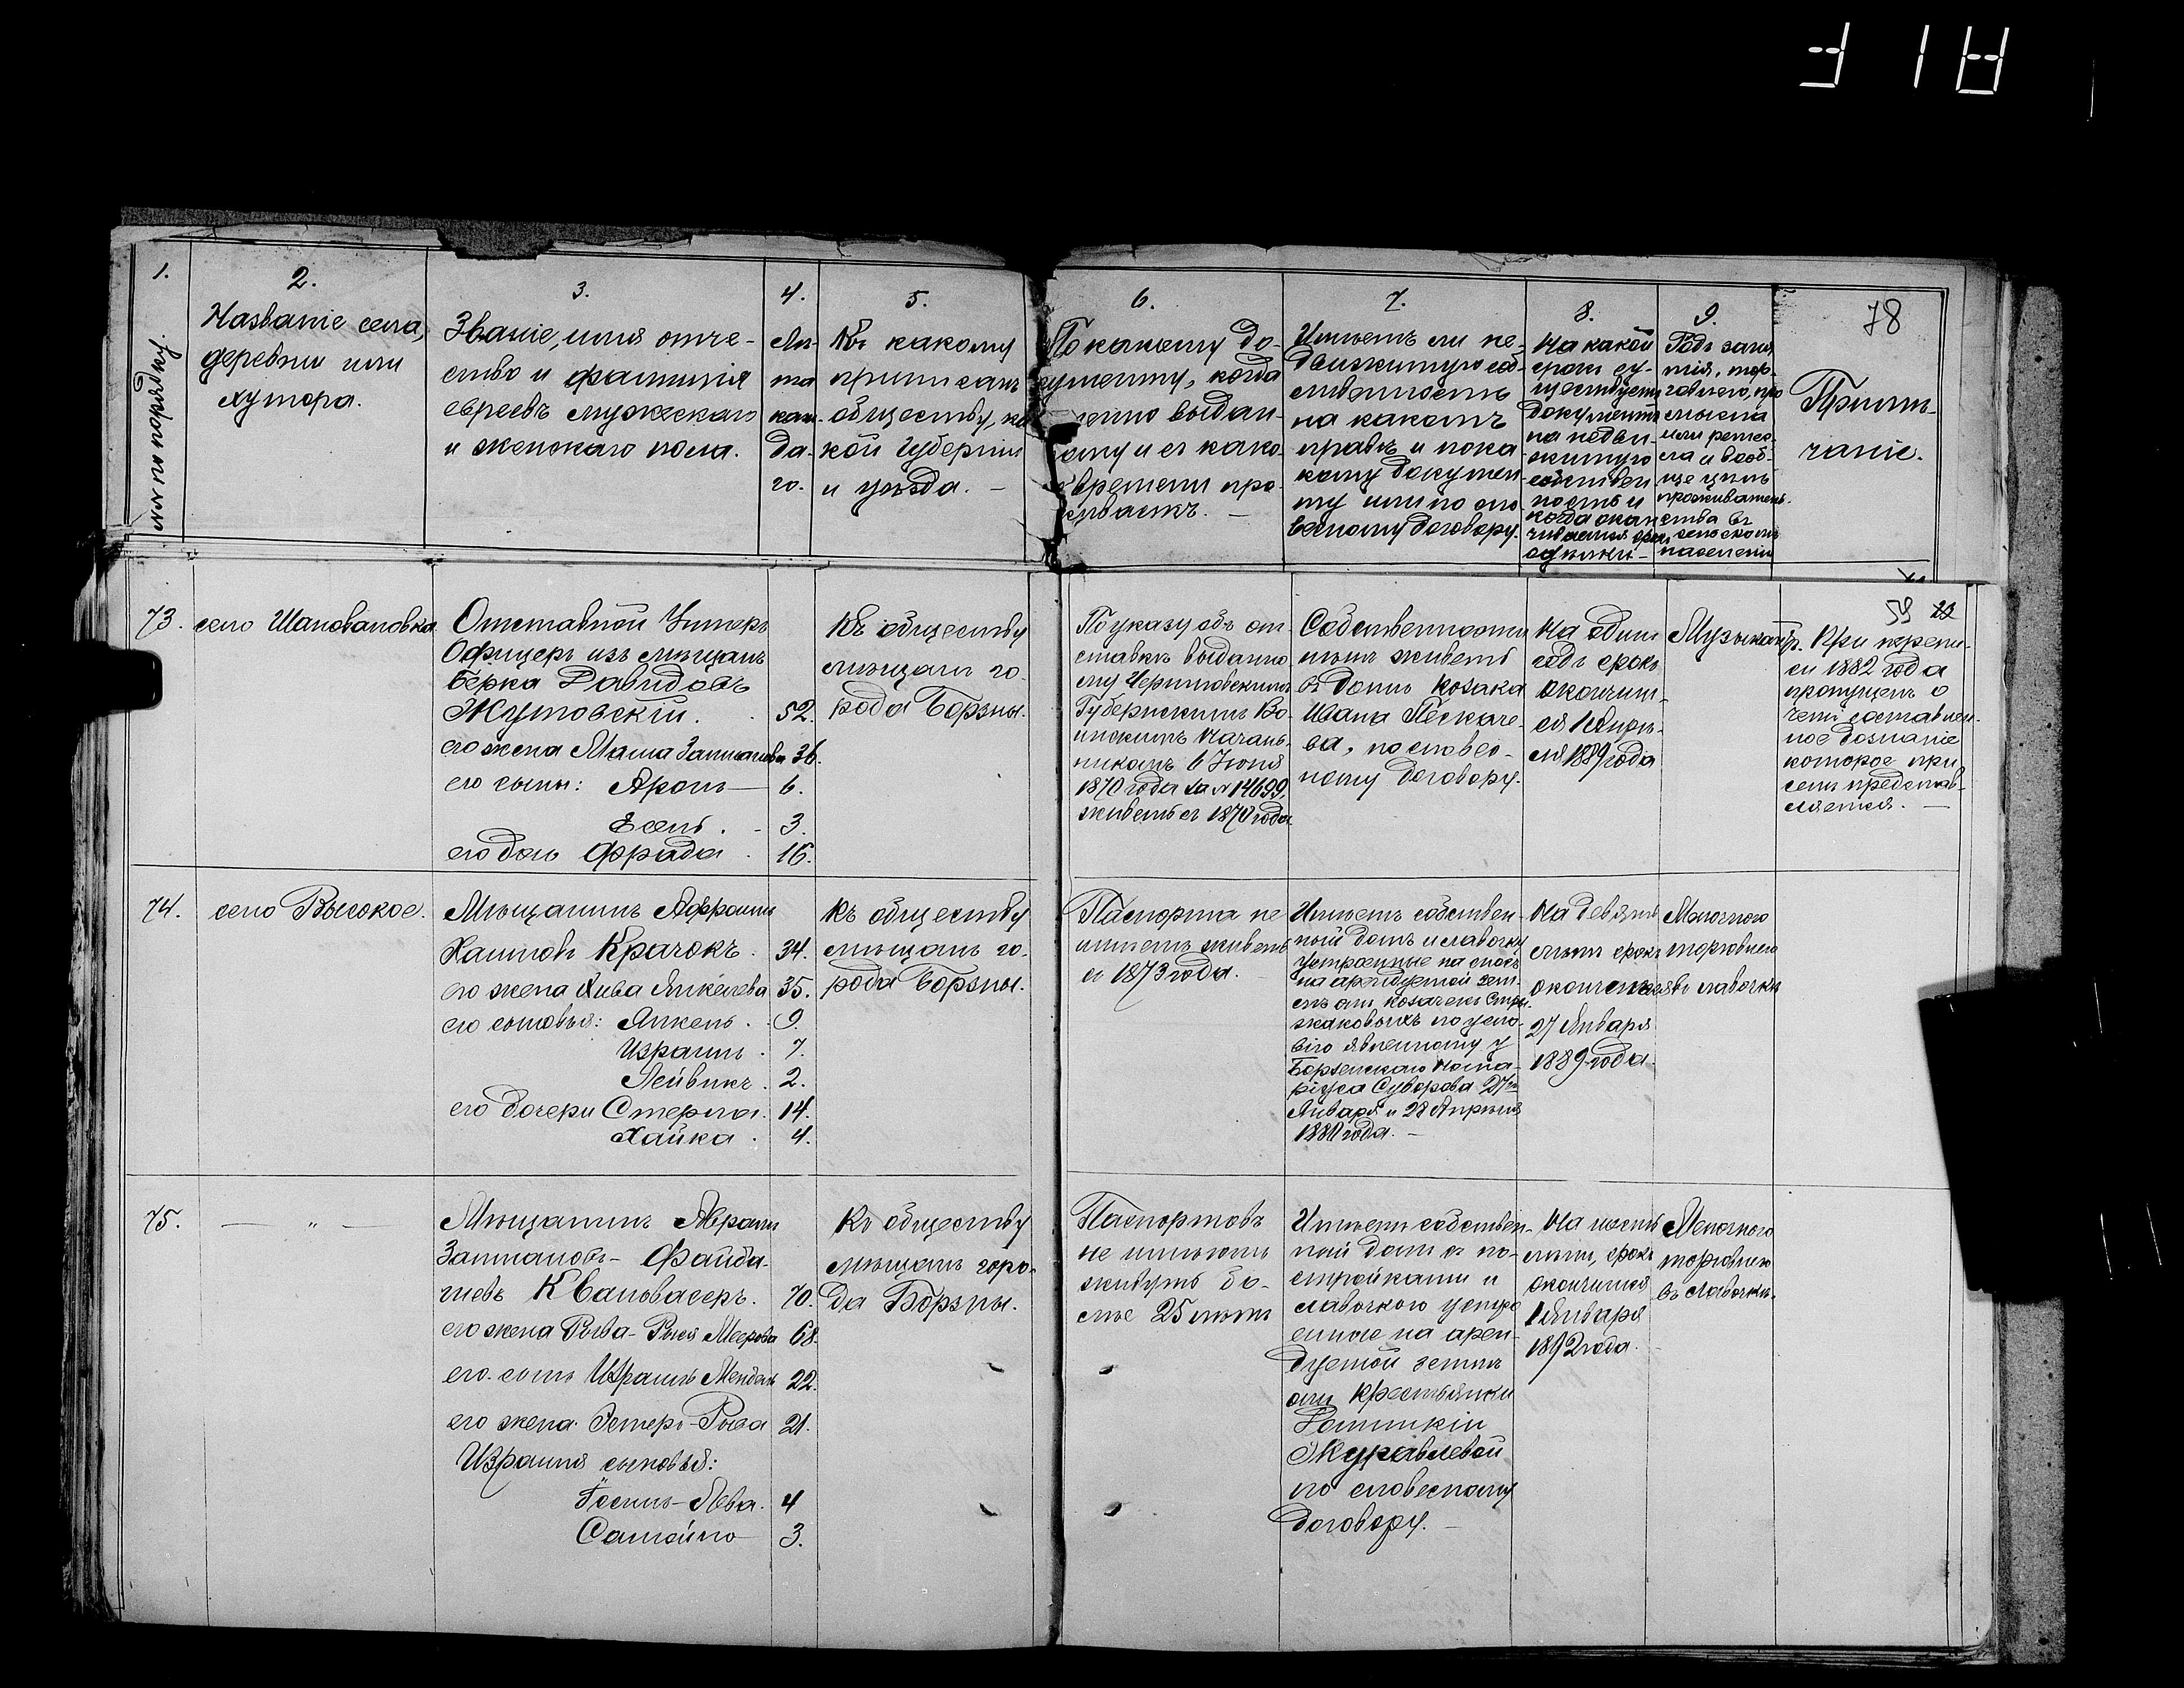 78
1.
№№ по порядку
2.
Названіе села,
деревни или
хутора.
3.
Званіе, имя отче-
ство и фамилія
евреевъ мужескаго
и женскаго пола.
4.
Лѣ-
та
каж-
да-
го.
5.
Къ какому
приписанъ
обществу, ка
кой губерніи
и уѣзда. —
6.
По какому до-
кументу, когда
выдан-
ому и съ како-
времени про-
живаетъ. —
7.
Имѣетъ ли не-
движимую соб-
ственность
на какомъ
правѣ и по ка
кому докумен-
ту или по сло-
весному договору.
8.
На какой
срокъ су-
ществуетъ
документъ
на недви-
жимую
собствен-
ность и
когда окан
чивается срокъ
9.
Родъ заня
тія, тор-
говлею, про
мысла
или ремес-
ла и вооб-
ще цѣль
проживатель
ства въ
сельскомъ
населеніи
Примѣ-
чаніе.
59
73.
село Шаповаловка
Отставной Унтеръ
Офицеръ изъ мѣщанъ
Берка Давидовъ
Жутовскій. 52.
его жена Маша Залманова 36.
его сыны: Аронъ — 6.
3.
его дочь Фрада 16.
Къ обществу
мѣщанъ го-
рода Борзны.
По указу объ от-
ставкѣ выданно-
му Черниговскимъ
Губернскимъ Во-
инскимъ Началь-
никомъ 6 Іюня
1870 года за № 14699,
живетъ съ 1870 года
Собственности
нѣтъ живетъ
въ домѣ козака
Ивана
ва, по словес-
ному договору.
На одинъ
годъ срокъ
окончит-
ся 1 Апрѣ-
ля 1889 года
Музыкантъ.
При перепи-
си 1882 года
пропущенъ о
чемъ составлен-
ное дознаніе
которое при
семъ представ-
ляется. —
74.
село Высокое.
Мѣщанинъ Афроимъ
Хаимовъ Крачокъ. 34.
его жена Хива Янкелева 35.
его сыновья: Янкель. 9.
Израиль. 7.
Лейвикъ. 2.
его дочери Стерна. 14.
Хайка. 4.
Къ обществу
мѣщанъ го-
рода Борзны.
Паспорта не
имѣетъ живетъ
съ 1873 года.
Имѣетъ собствен-
ный домъ и лавочку
устроенные на
на арендуемой зем-
лѣ отъ козачекъ
по усло-
вію явленному у
Борзенскаго Нота-
ріуса Суворова 27го
Января и 28 Апрѣля
1880 года. —
На девять
лѣтъ срокъ
окончился
27 Января
1889 года.
Мелочною
торговлею
въ лавочкѣ
75.
— „ —
Мѣщанинъ Абрамъ
Залмановъ- Файба-
шевъ Квановасеръ. 70.
его жена Рыва-Рыся Меерова 68.
его сынъ Израиль Мендель 22.
его жена: Эстеръ-Рыва 21.
Израиля сыновья:
Іосиль-Лева. 4
Самойло 3.
Къ обществу
мѣщанъ горо-
да Борзны.
Паспортовъ
не имѣютъ
живутъ бо-
лѣе 25 лѣтъ
Имѣетъ собствен-
ный домъ съ по-
стройками и
лавочкою устро
енные на арен-
дуемой землѣ
отъ крестьянки
Журавлевой
по словесному
договору. —
На шесть
лѣтъ, срокъ
окончится
1 Января
1892 года.
Мелочною
торговлею
въ лавочкѣ.